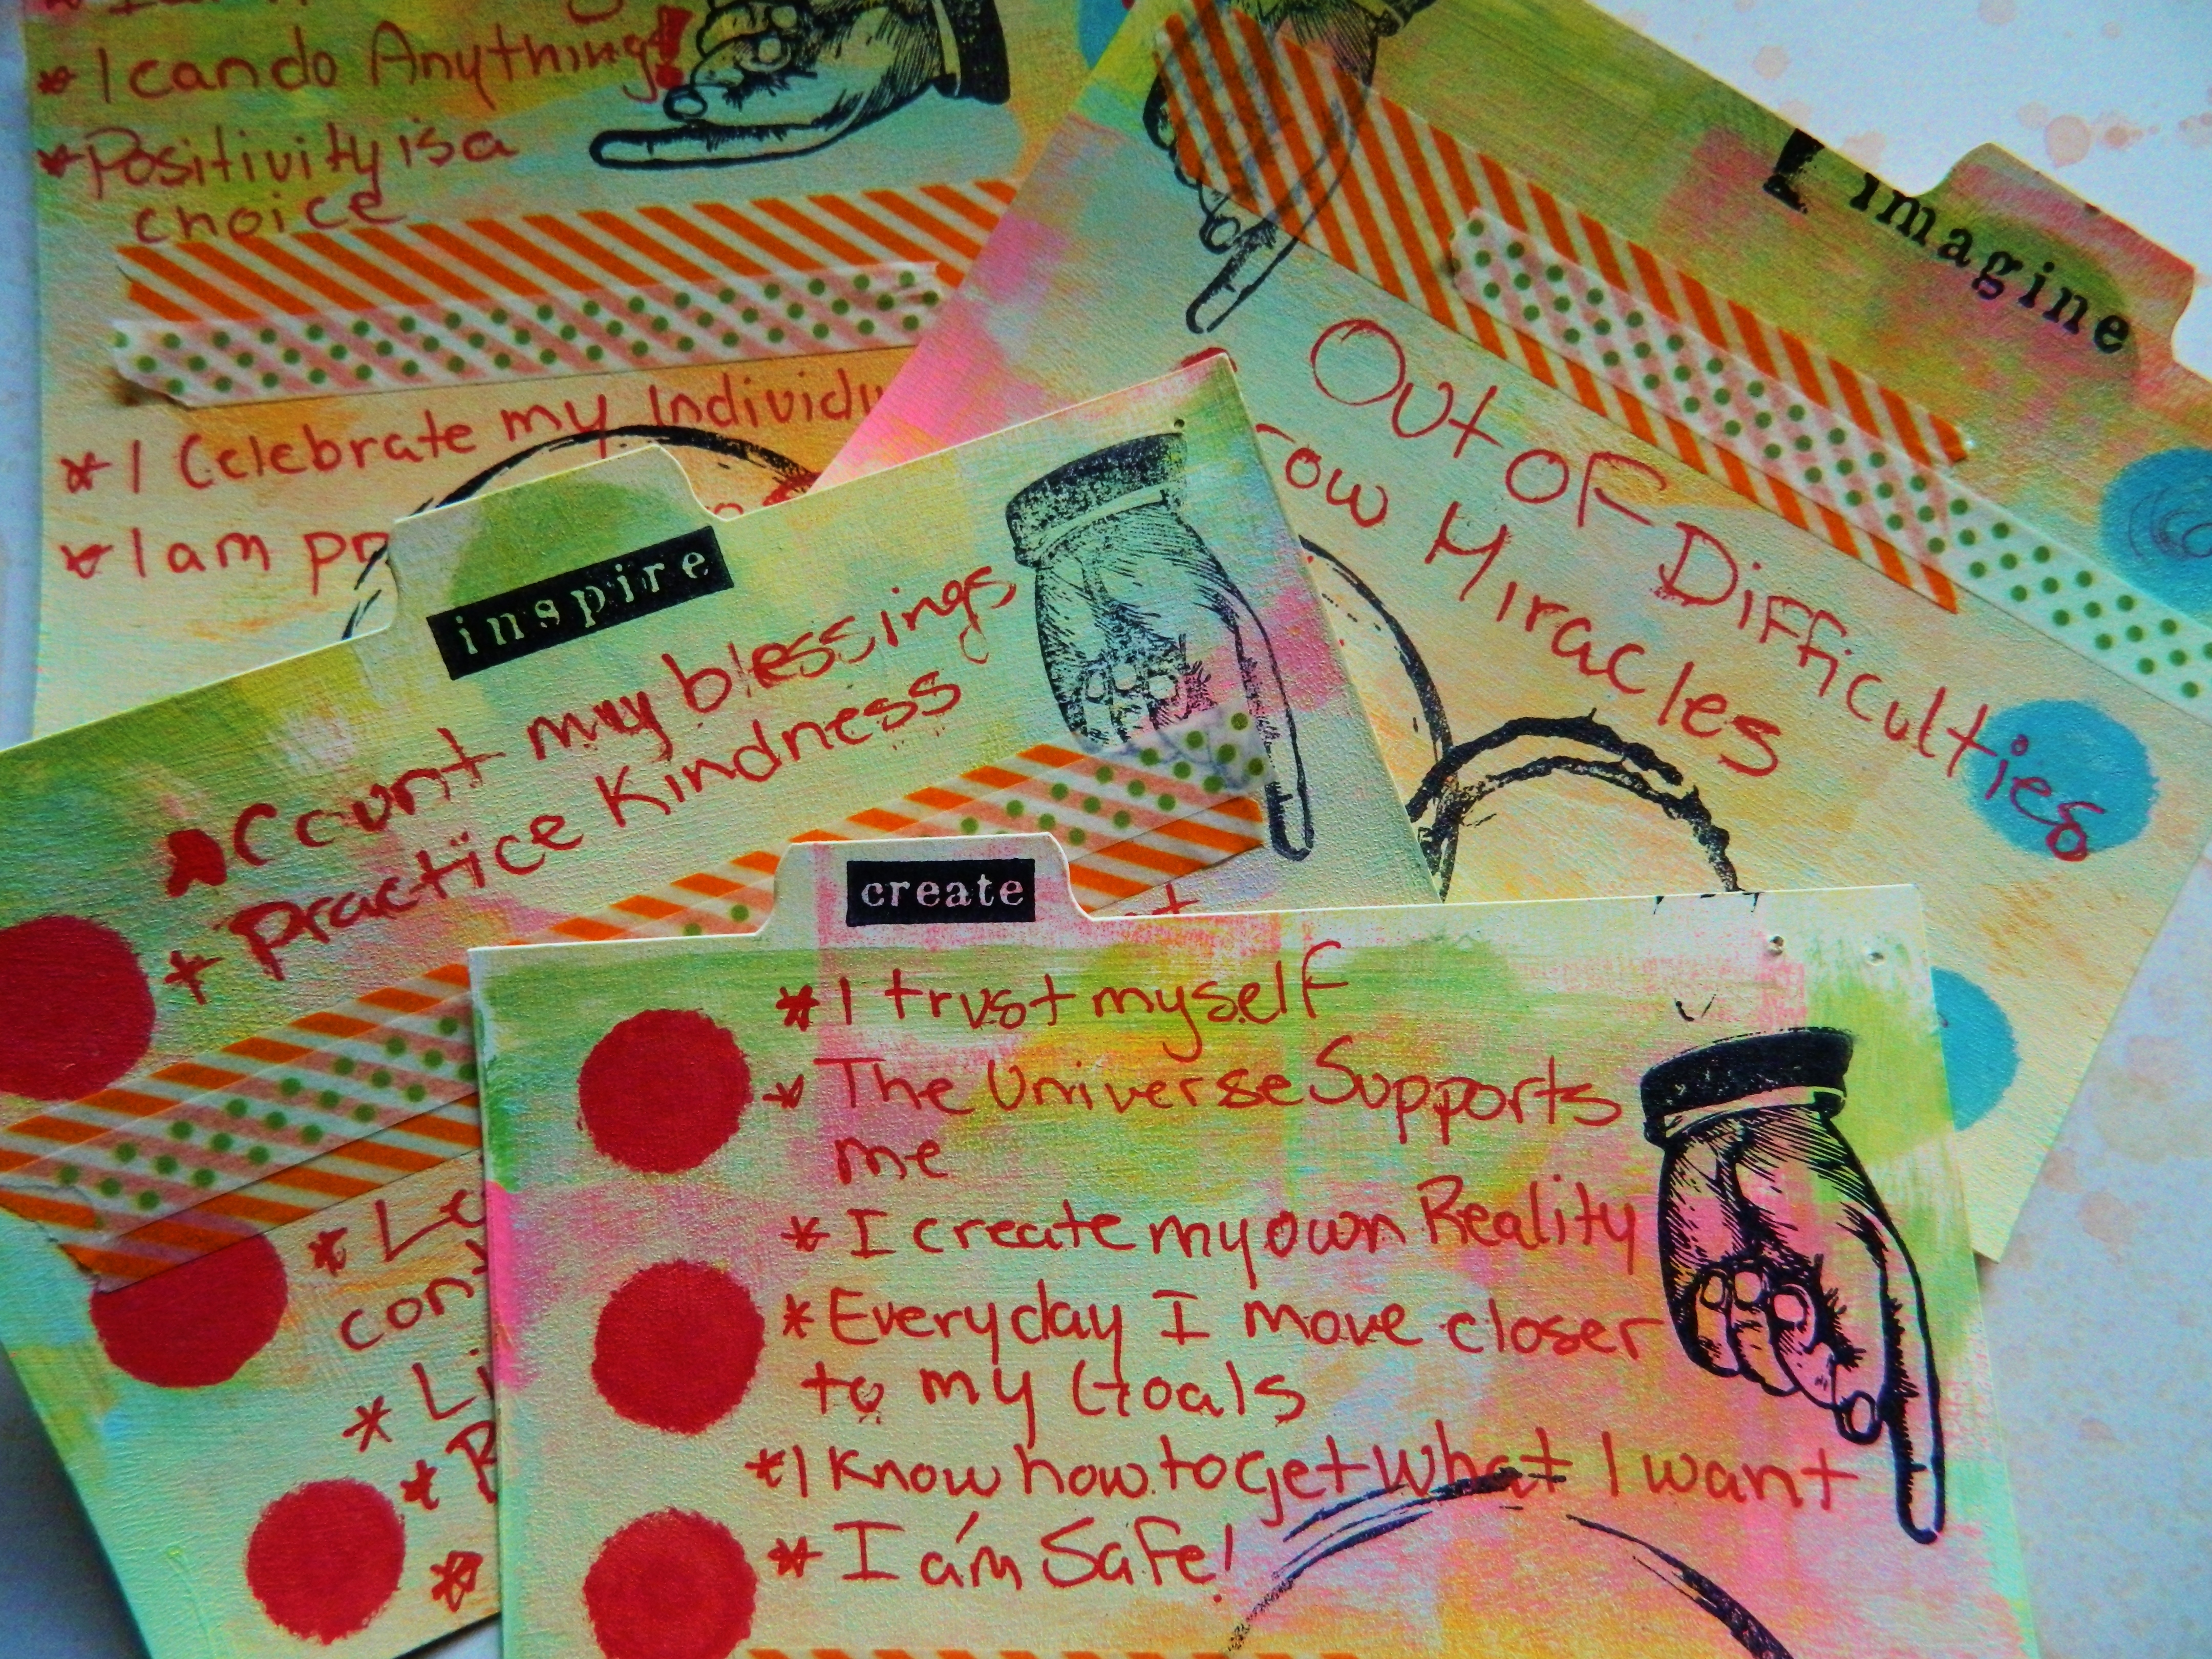 * I can do Anything!
* Positivity is a
choice
* I Celebrate my
* I am
imagine
Out of Difficulties
Miracles
inspire
Count my blessings
* Practice Kindness
create
* I trust myself
* The Universe Supports
me
* I create my own Reality
* Everyday I move closer
to my Goals
* I Know how to get what I want
* I am Safe!